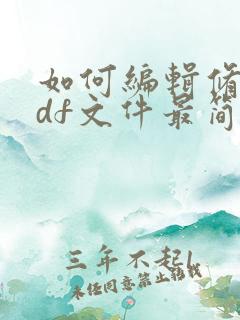 如何编辑修
df文件最简
三年不起l
未经同意禁止转载